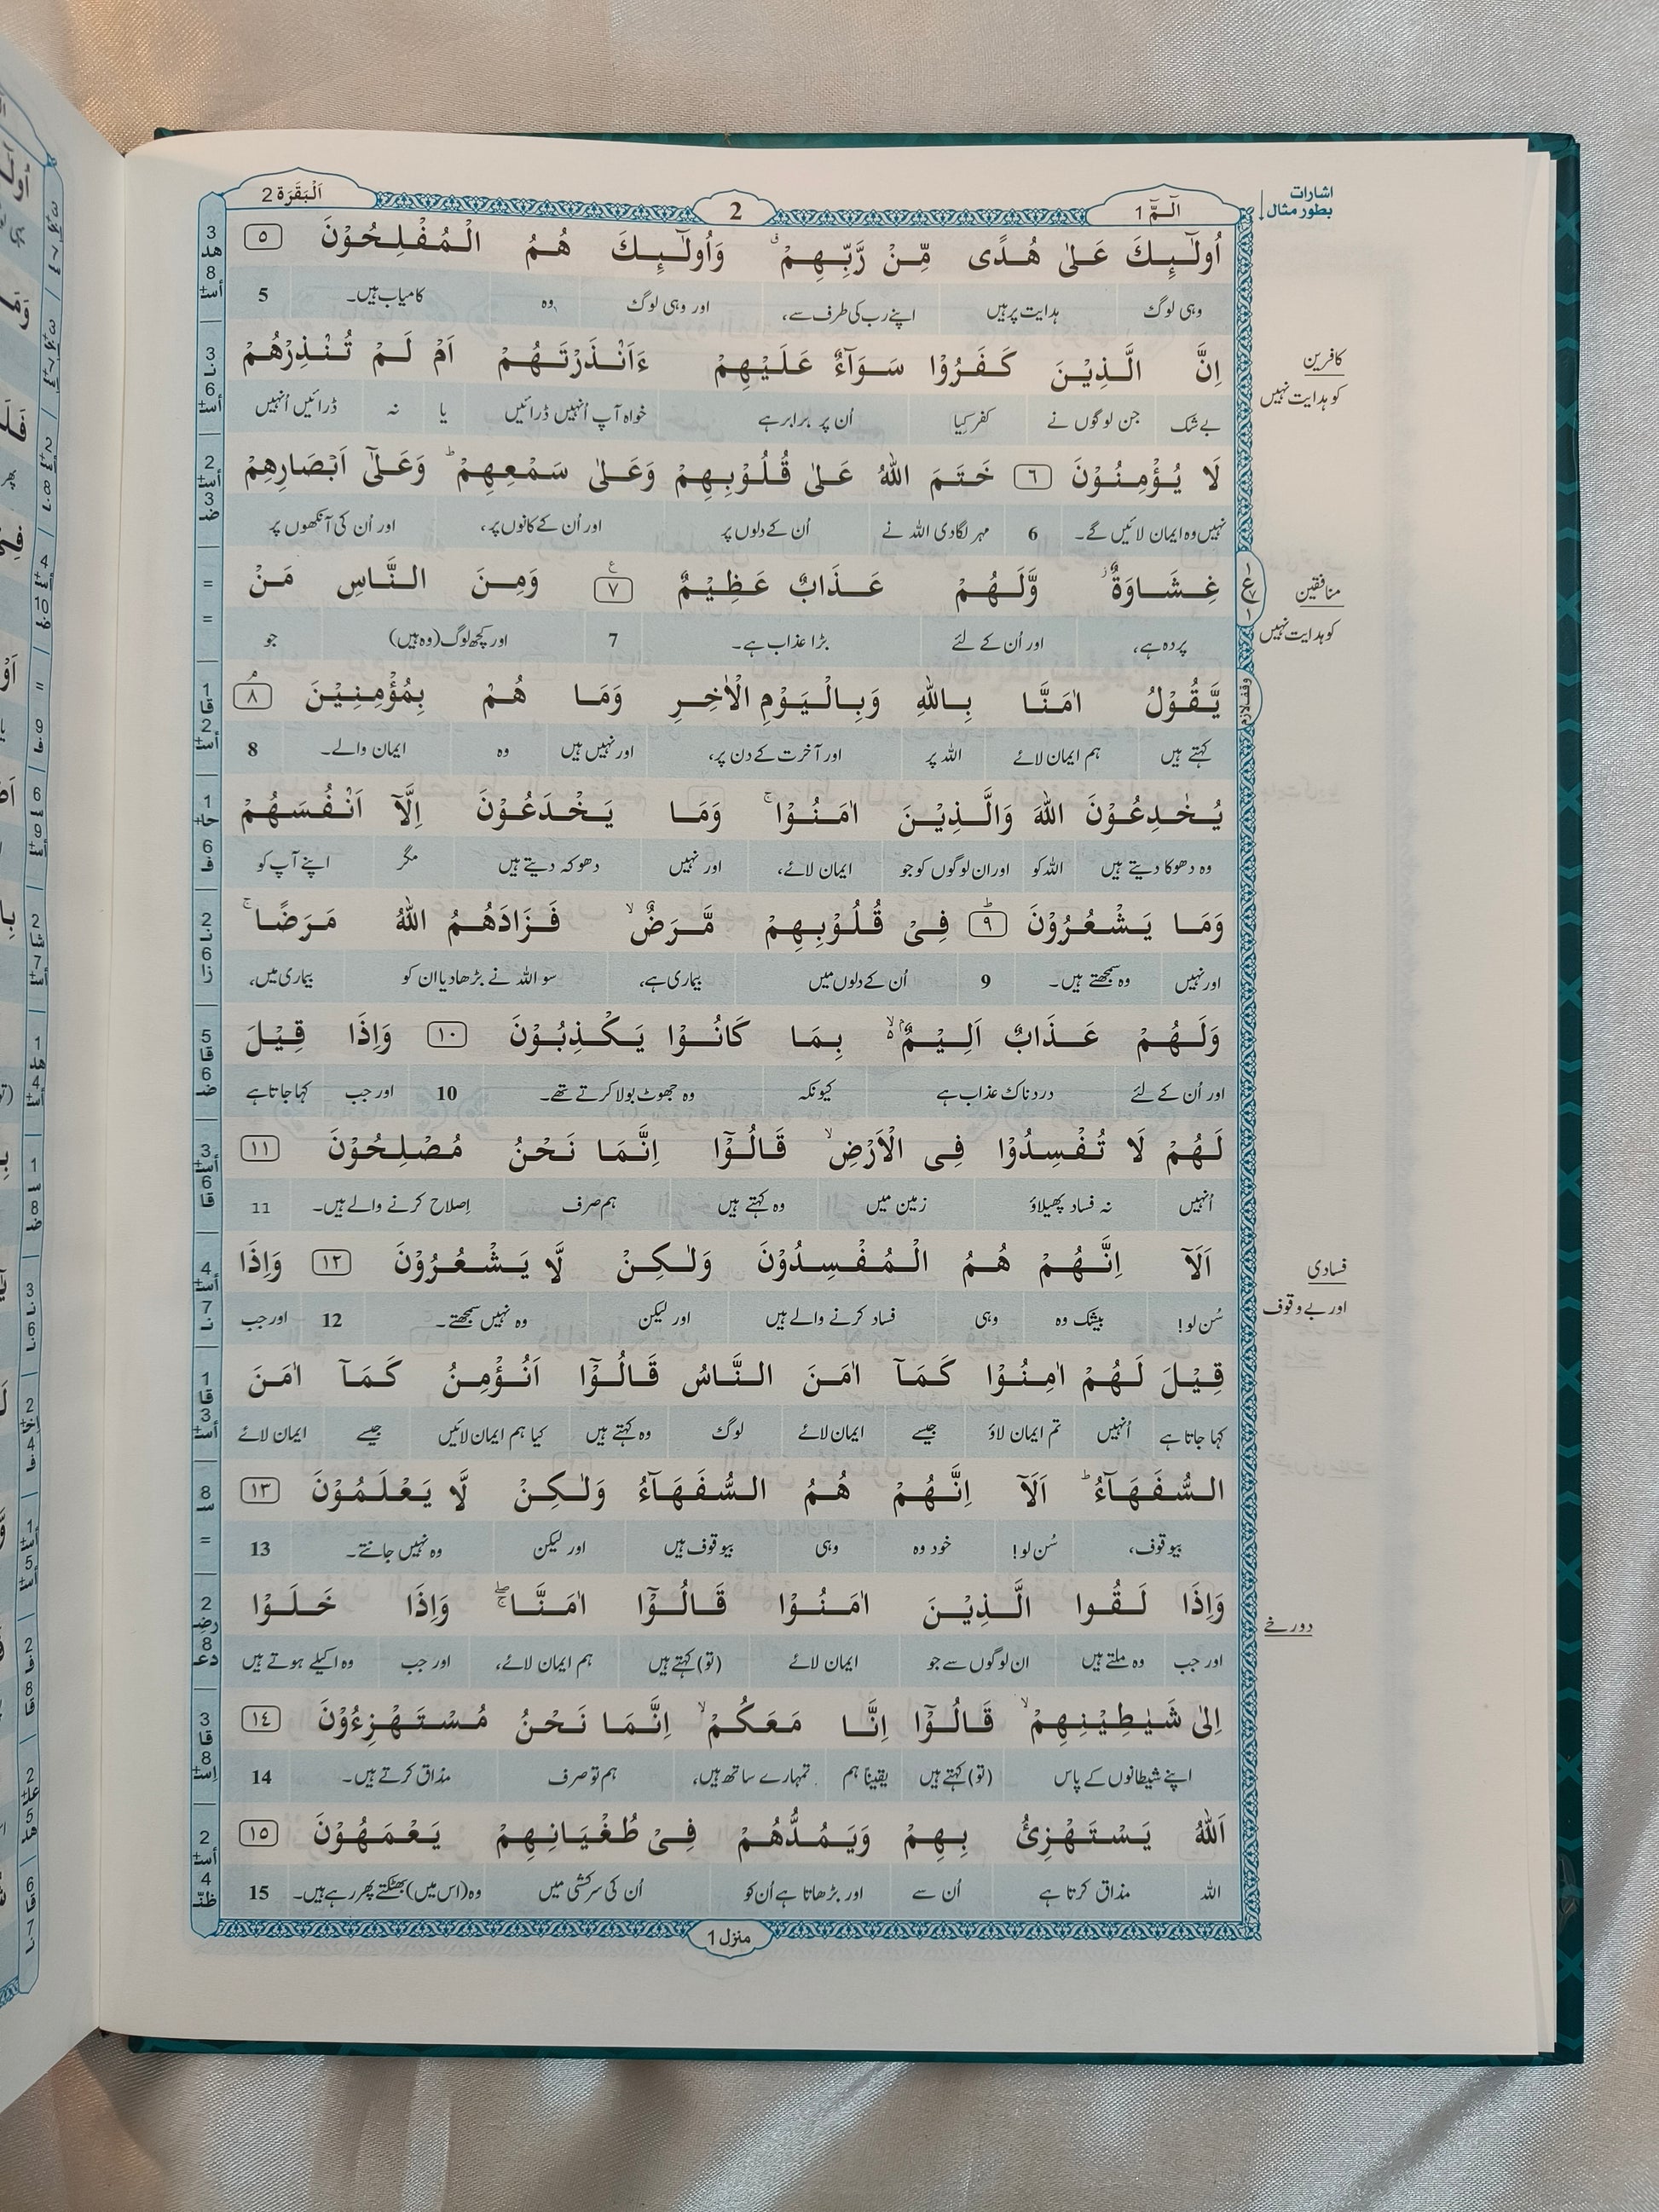 الٓـمّٓ 1
2
اَلْبَقَرَة 2
اشارات
بطور مثال
اُولٰٓئِكَ عَلٰى هُدًى مِّنْ رَّبِّهِمْ ۙ وَاُولٰٓئِكَ هُمُ الْمُفْلِحُوْنَ ٥
وہی لوگ ہدایت پر ہیں اپنے رب کی طرف سے، اور وہی لوگ وہ کامیاب ہیں۔ 5
اِنَّ الَّذِيْنَ كَفَرُوْا سَوَآءٌ عَلَيْهِمْ ءَاَنْذَرْتَهُمْ اَمْ لَمْ تُنْذِرْهُمْ
بے شک جن لوگوں نے کفر کیا اُن پر برابر ہے خواہ آپ اُنہیں ڈرائیں یا نہ ڈرائیں اُنہیں
کافرین
کو ہدایت نہیں
لَا يُؤْمِنُوْنَ ٦ خَتَمَ اللّٰهُ عَلٰى قُلُوْبِهِمْ وَعَلٰى سَمْعِهِمْ ؕ وَعَلٰٓى اَبْصَارِهِمْ
نہیں وہ ایمان لائیں گے۔ 6 مہر لگا دی اللہ نے اُن کے دلوں پر اور اُن کے کانوں پر، اور اُن کی آنکھوں پر
غِشَاوَةٌ ؗ وَّلَهُمْ عَذَابٌ عَظِيْمٌ ٧ وَمِنَ النَّاسِ مَنْ
پردہ ہے، اور اُن کے لئے بڑا عذاب ہے۔ 7 اور کچھ لوگ (وہ ہیں) جو
منافقین
کو ہدایت نہیں
يَّقُوْلُ اٰمَنَّا بِاللّٰهِ وَبِالْيَوْمِ الْاٰخِرِ وَمَا هُمْ بِمُؤْمِنِيْنَ ٨
کہتے ہیں ہم ایمان لائے اللہ پر اور آخرت کے دن پر، اور نہیں ہیں وہ ایمان والے۔ 8
وقف لازم
يُخٰدِعُوْنَ اللّٰهَ وَالَّذِيْنَ اٰمَنُوْا ۚ وَمَا يَخْدَعُوْنَ اِلَّآ اَنْفُسَهُمْ
وہ دھوکا دیتے ہیں اللہ کو اور ان لوگوں کو جو ایمان لائے، اور نہیں دھوکہ دیتے ہیں مگر اپنے آپ کو
وَمَا يَشْعُرُوْنَ ؕ ٩ فِىْ قُلُوْبِهِمْ مَّرَضٌ ۙ فَزَادَهُمُ اللّٰهُ مَرَضًا ۚ
اور نہیں وہ سمجھتے ہیں۔ 9 اُن کے دلوں میں بیماری ہے، سو اللہ نے بڑھا دیا ان کو بیماری میں،
وَلَهُمْ عَذَابٌ اَلِيْمٌۢ ۙ بِمَا كَانُوْا يَكْذِبُوْنَ ١٠ وَاِذَا قِيْلَ
اور اُن کے لئے دردناک عذاب ہے کیونکہ وہ جھوٹ بولا کرتے تھے۔ 10 اور جب کہا جاتا ہے
لَهُمْ لَا تُفْسِدُوْا فِى الْاَرْضِ ۙ قَالُوْٓا اِنَّمَا نَحْنُ مُصْلِحُوْنَ ١١
اُنہیں نہ فساد پھیلاؤ زمین میں وہ کہتے ہیں ہم صرف اِصلاح کرنے والے ہیں۔ 11
اَلَآ اِنَّهُمْ هُمُ الْمُفْسِدُوْنَ وَلٰكِنْ لَّا يَشْعُرُوْنَ ١٢ وَاِذَا
سُن لو! بیشک وہ وہی فساد کرنے والے ہیں اور لیکن وہ نہیں سمجھتے۔ 12 اور جب
فسادی
اور بے وقوف
قِيْلَ لَهُمْ اٰمِنُوْا كَمَآ اٰمَنَ النَّاسُ قَالُوْٓا اَنُؤْمِنُ كَمَآ اٰمَنَ
کہا جاتا ہے اُنہیں تم ایمان لاؤ جیسے ایمان لائے لوگ وہ کہتے ہیں کیا ہم ایمان لائیں جیسے ایمان لائے
السُّفَهَآءُ ؕ اَلَآ اِنَّهُمْ هُمُ السُّفَهَآءُ وَلٰكِنْ لَّا يَعْلَمُوْنَ ١٣
بیوقوف، سُن لو! خود وہ وہی بیوقوف ہیں اور لیکن وہ نہیں جانتے۔ 13
وَاِذَا لَقُوا الَّذِيْنَ اٰمَنُوْا قَالُوْٓا اٰمَنَّا ۖۚ وَاِذَا خَلَوْا
اور جب وہ ملتے ہیں ان لوگوں سے جو ایمان لائے (تو) کہتے ہیں ہم ایمان لائے، اور جب وہ اکیلے ہوتے ہیں
دورخے
اِلٰى شَيٰطِيْنِهِمْ ۙ قَالُوْٓا اِنَّا مَعَكُمْ ۙ اِنَّمَا نَحْنُ مُسْتَهْزِءُوْنَ ١٤
اپنے شیطانوں کے پاس (تو) کہتے ہیں یقیناً ہم تمہارے ساتھ ہیں، ہم تو صرف مذاق کرتے ہیں۔ 14
اَللّٰهُ يَسْتَهْزِئُ بِهِمْ وَيَمُدُّهُمْ فِىْ طُغْيَانِهِمْ يَعْمَهُوْنَ ١٥
اللہ مذاق کرتا ہے اُن سے اور بڑھاتا ہے اُن کو اُن کی سرکشی میں وہ (اس میں) بھٹکتے پھر رہے ہیں۔ 15
منزل 1